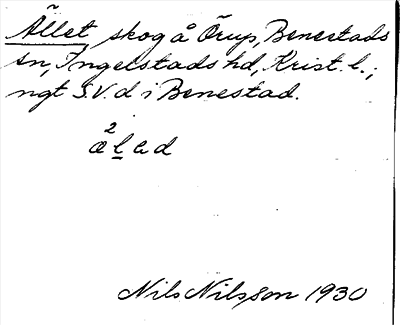 Ållet skog å Örup, Benestads
sn, Ingelstads hd, Krist. l.;
ngt S.V. d i Benestad.
2
Nils Nilsson 1930